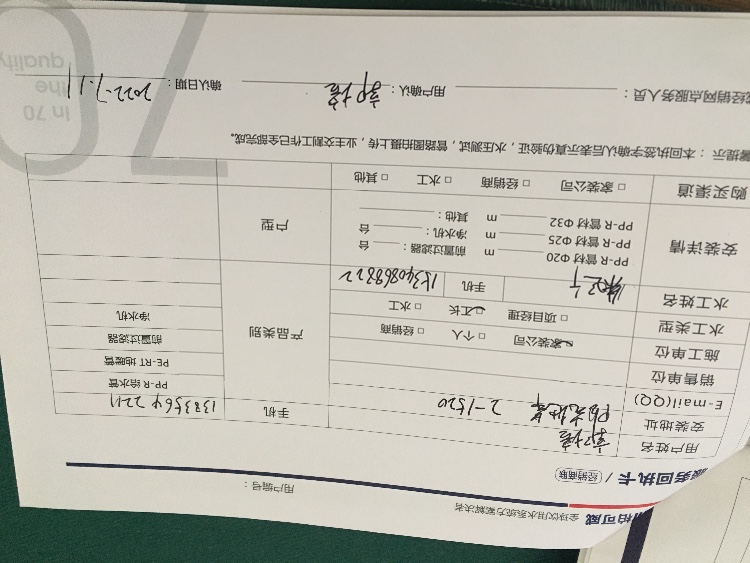 柏可威 全球饮用水系统方案解决者
服务回执卡 / 经销商联
用户编号：
用户姓名
手机 1383564 2211
安装地址 阳光地华 2-1520
E-mail(QQ)
销售单位
施工单位 家装公司 □ 个人 □ 经销商
水工类型 □ 项目经理 工长 □ 水工
水工姓名 手机 15340868822
产品类别
PP-R 给水管
PE-RT 地暖管
前置过滤器
净水机
安装详情
PP-R 管材 Φ20 m 前置过滤器： 台
PP-R 管材 Φ25 m 净水机： 台
PP-R 管材 Φ32 m 其他：
户型
购买渠道 □ 家装公司 □ 经销商 □ 水工 □ 其他
提示：本回执签字确认后表示真伪验证，水压测试，管路图拍摄上传，业主交割工作已全部完成。
经销网点服务人员： 用户确认： 确认日期：2022-7-11
In 70
the
quality
70